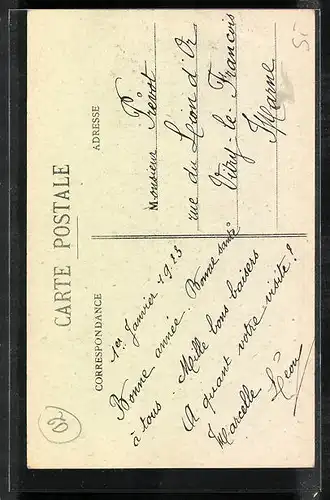 CARTE POSTALE
CORRESPONDANCE
1er Janvier 1913
Bonne année. Bonne santé
à tous. Mille bons baisers
A quant votre visite?
Marcelle Léon
ADRESSE
Monsieur Prévot
rue du Lion d'Or
Vitry-le-François
Marne
02